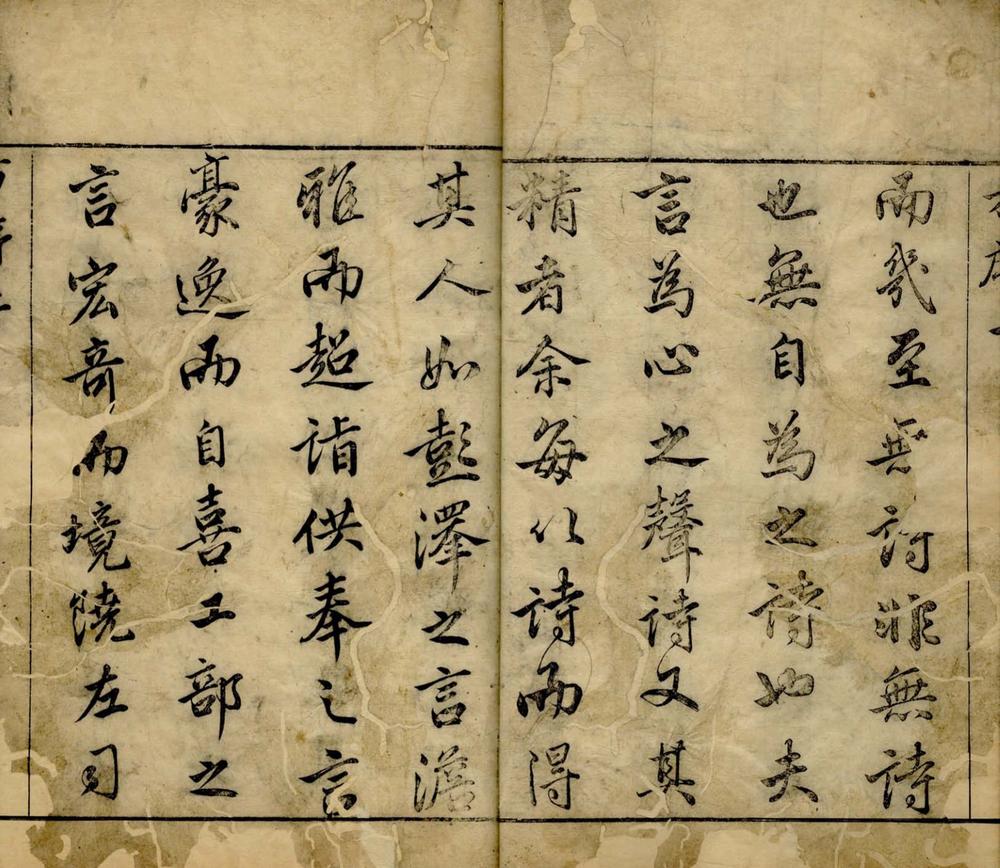 而幾至無詩非無詩
也無自為之詩也夫
言為心之聲詩又其
精者余每以詩而得
其人如彭澤之言澹
雅而超詣供奉之言
豪逸而自喜工部之
言宏奇而境饒左司